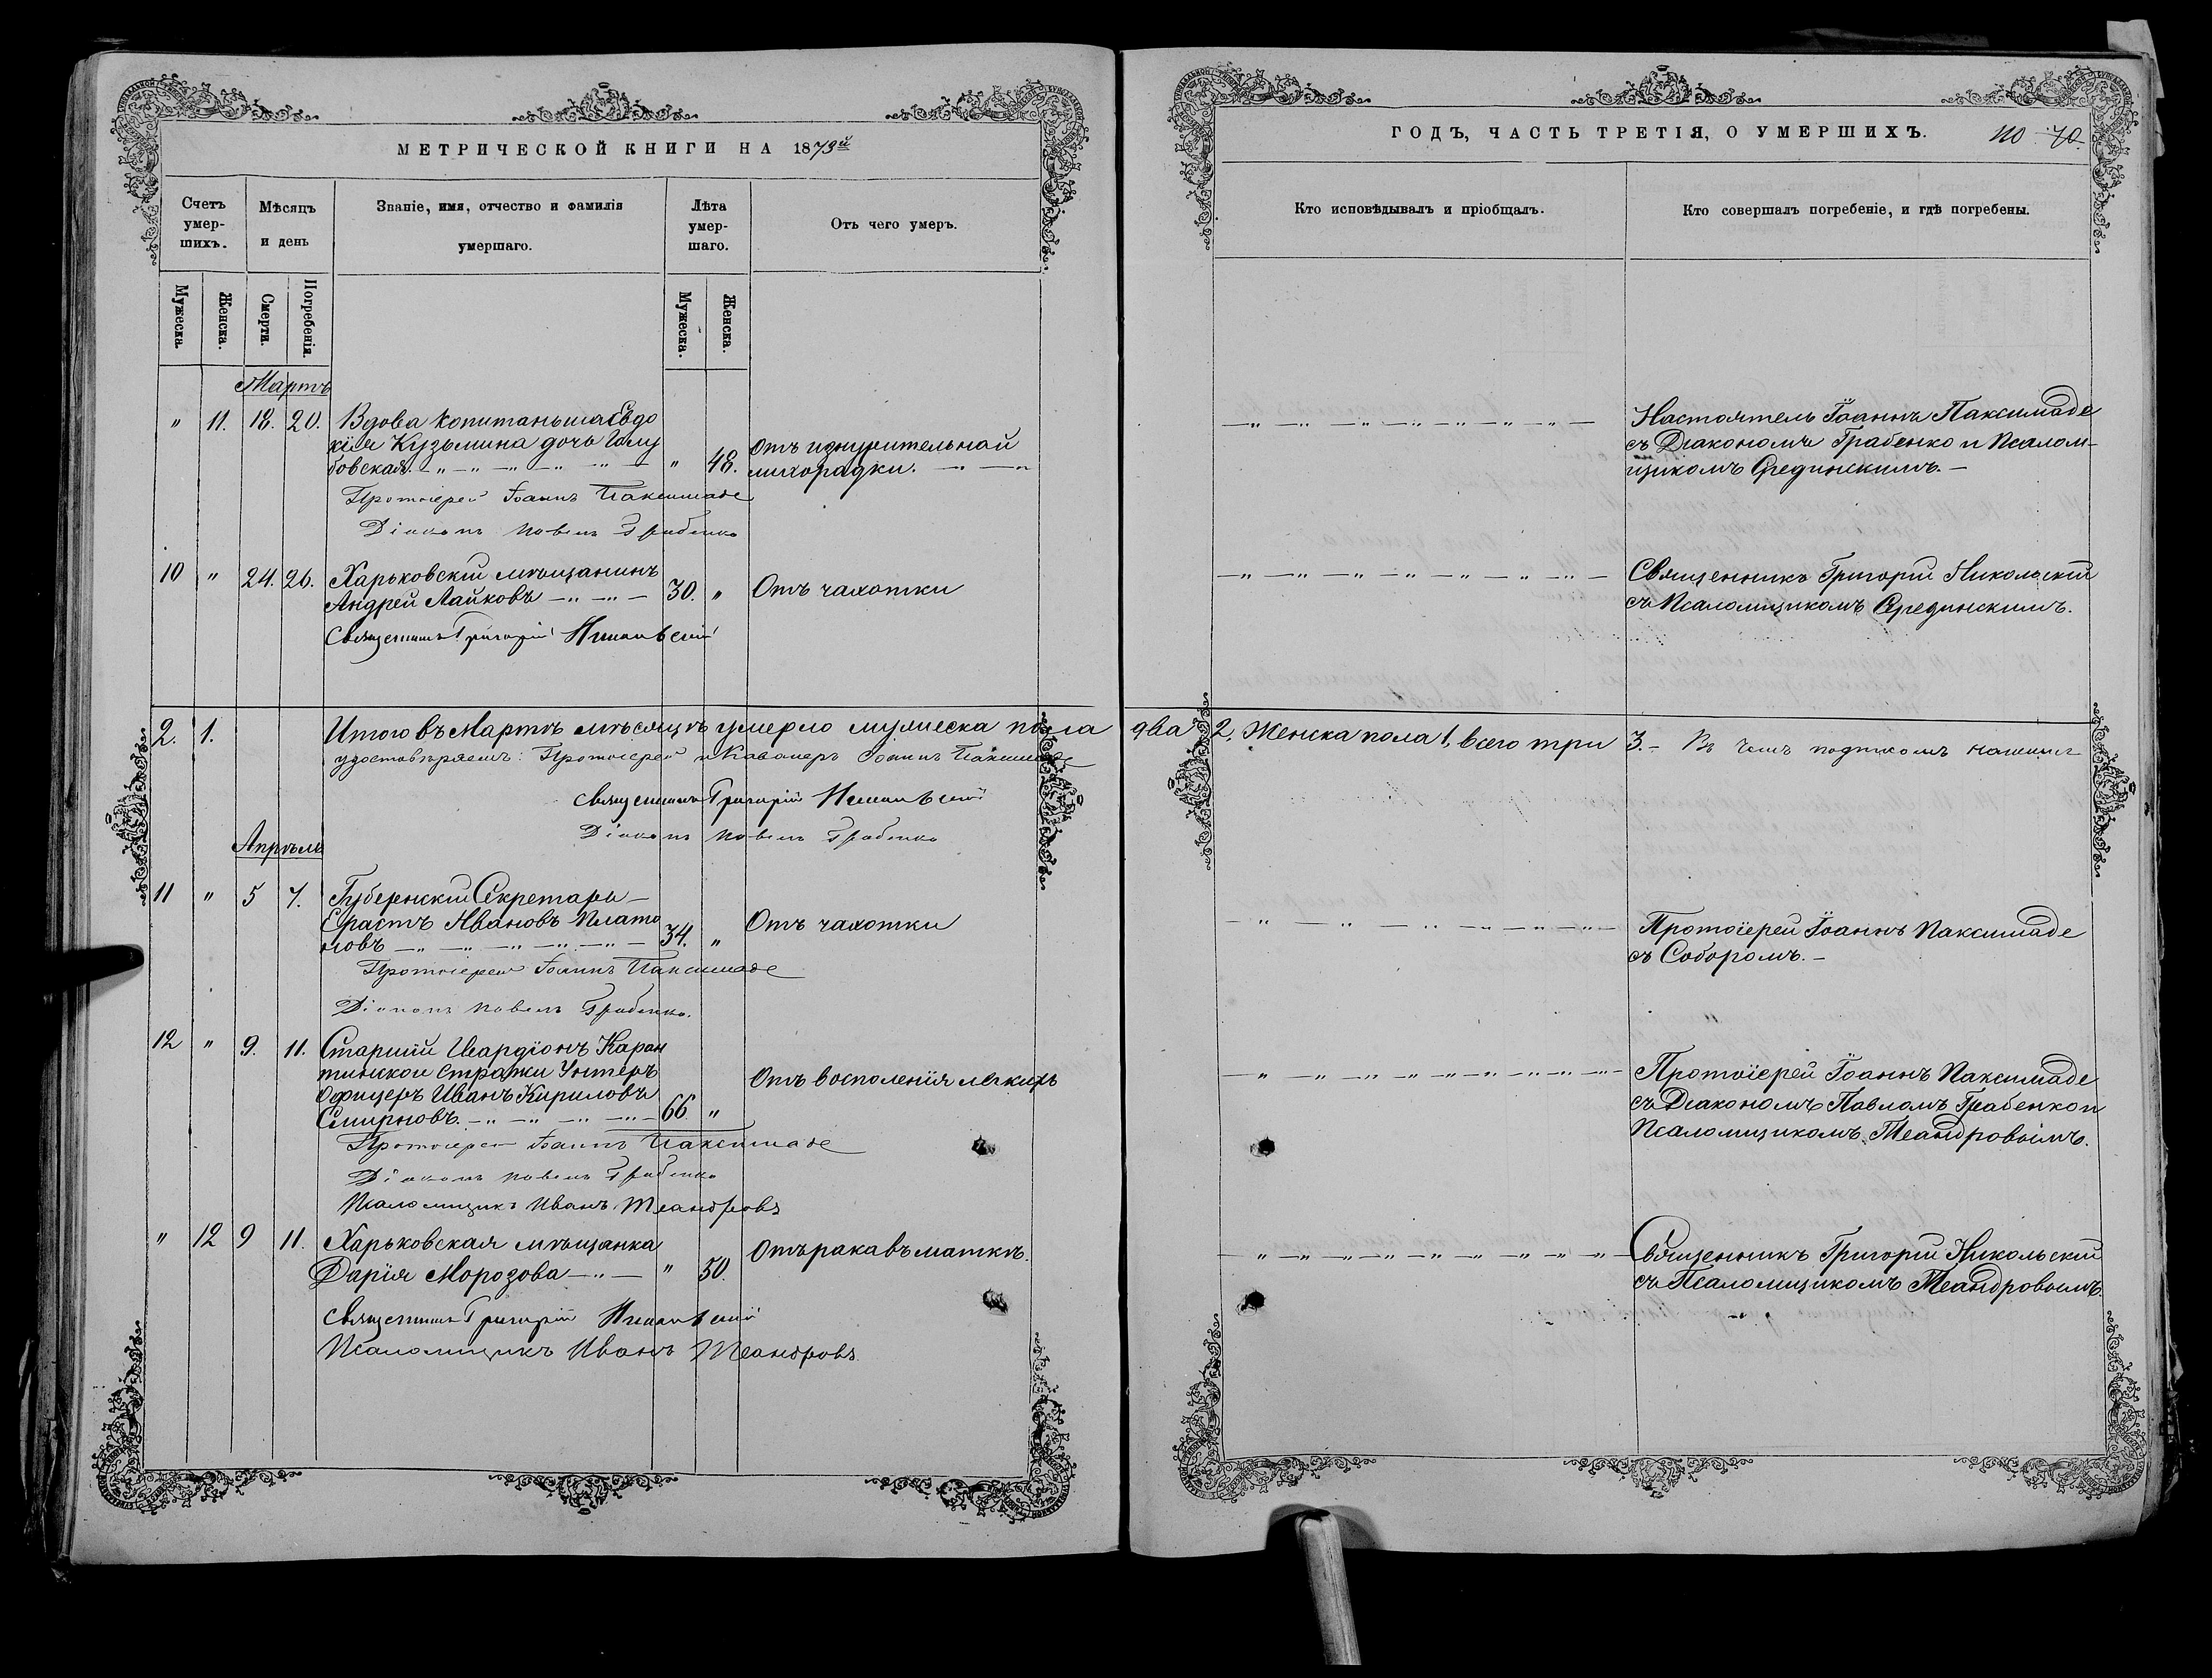 МЕТРИЧЕСКОЙ КНИГИ НА 1879й
Счетъ умер-шихъ.
Мѣсяцъ и день
Званіе, имя, отчество и фамилія умершаго.
Лѣта умер-шаго.
Отъ чего умеръ.
Мужеска.
Женска.
Смерти.
Погребенія.
Мужеска.
Женска.
Мартъ
" 11. 18. 20. Вдова Копитаньша Євдо
кія Кузьмина дочь Голу
бовская. " 48. Отъ изнурительнай
лихорадки.
Протоіерей Іоаннъ Паксимаде
Діаконъ Павелъ Грабенко
10 " 24. 26. Харьковскій мѣщанинъ
Андрей Лайковъ 30. " Отъ чахотки
Священникъ Григорій Никольскій
2. 1. Итого въ Мартѣ мѣсяцѣ умерло мужеска пола
удостовѣряемъ: Протоіерей и Кавалеръ Іоаннъ Паксимаде
Священникъ Григорій Никольскій
Діаконъ Павелъ Грабенко
Апрѣль
11 " 5 7. Губернскій Секретарь
Ерастъ Ивановъ Плато
новъ 34. " Отъ чахотки
Протоіерей Іоаннъ Паксимаде
Діаконъ Павелъ Грабенко.
12 " 9. 11. Старшій Гвардіонъ Каран
тинской стражи Унтеръ
Офицеръ Иванъ Кириловъ
Смирновъ. 66 " Отъ восполенія легкихъ
Протоіерей Іоаннъ Паксимаде
Діаконъ Павелъ Грабенко
Псаломщикъ Иванъ Теандровъ
" 12 9 11. Харьковская мѣщанка
Дарія Морозова " 50. Отъ рака въ маткѣ.
Священникъ Григорій Никольскій
Псаломщикъ Иванъ Теандровъ
ГОДЪ, ЧАСТЬ ТРЕТІЯ, О УМЕРШИХЪ.
Кто исповѣдывалъ и пріобщалъ.
Кто совершалъ погребеніе, и гдѣ погребены.
Настоятель Іоаннъ Паксимаде
съ Діакономъ Грабенко и Псалом-
щикомъ Срединскимъ.
Священникъ Григорій Никольскій
съ Псаломщикомъ Срединскимъ.
два 2, Женска пола 1, всего три 3. – Въ чемъ подписомъ нашимъ
Протоіерей Іоаннъ Паксимаде
съ Соборомъ. –
Протоіерей Іоаннъ Паксимаде
съ Діакономъ Павломъ Грабенко и
Псаломщикомъ Теандровымъ.
Священникъ Григорій Никольскій
съ Псаломщикомъ Теандровымъ.